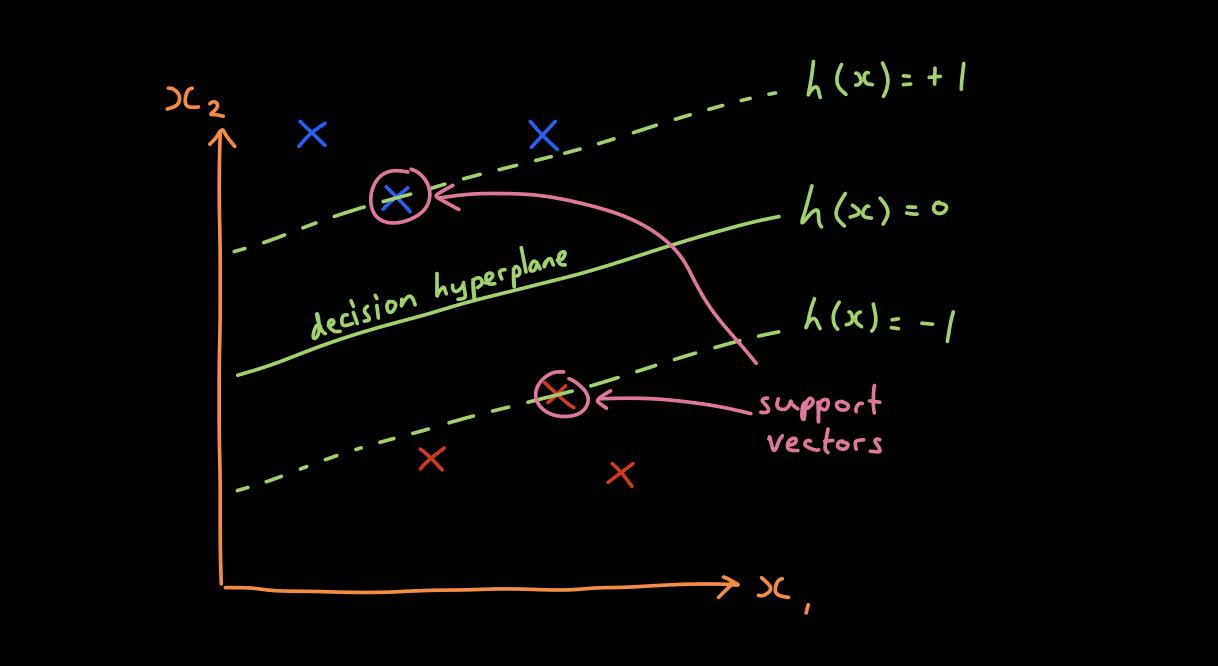 h(x) = +1
x₂
h(x) = 0
decision hyperplane
h(x) = -1
support
vectors
x₁